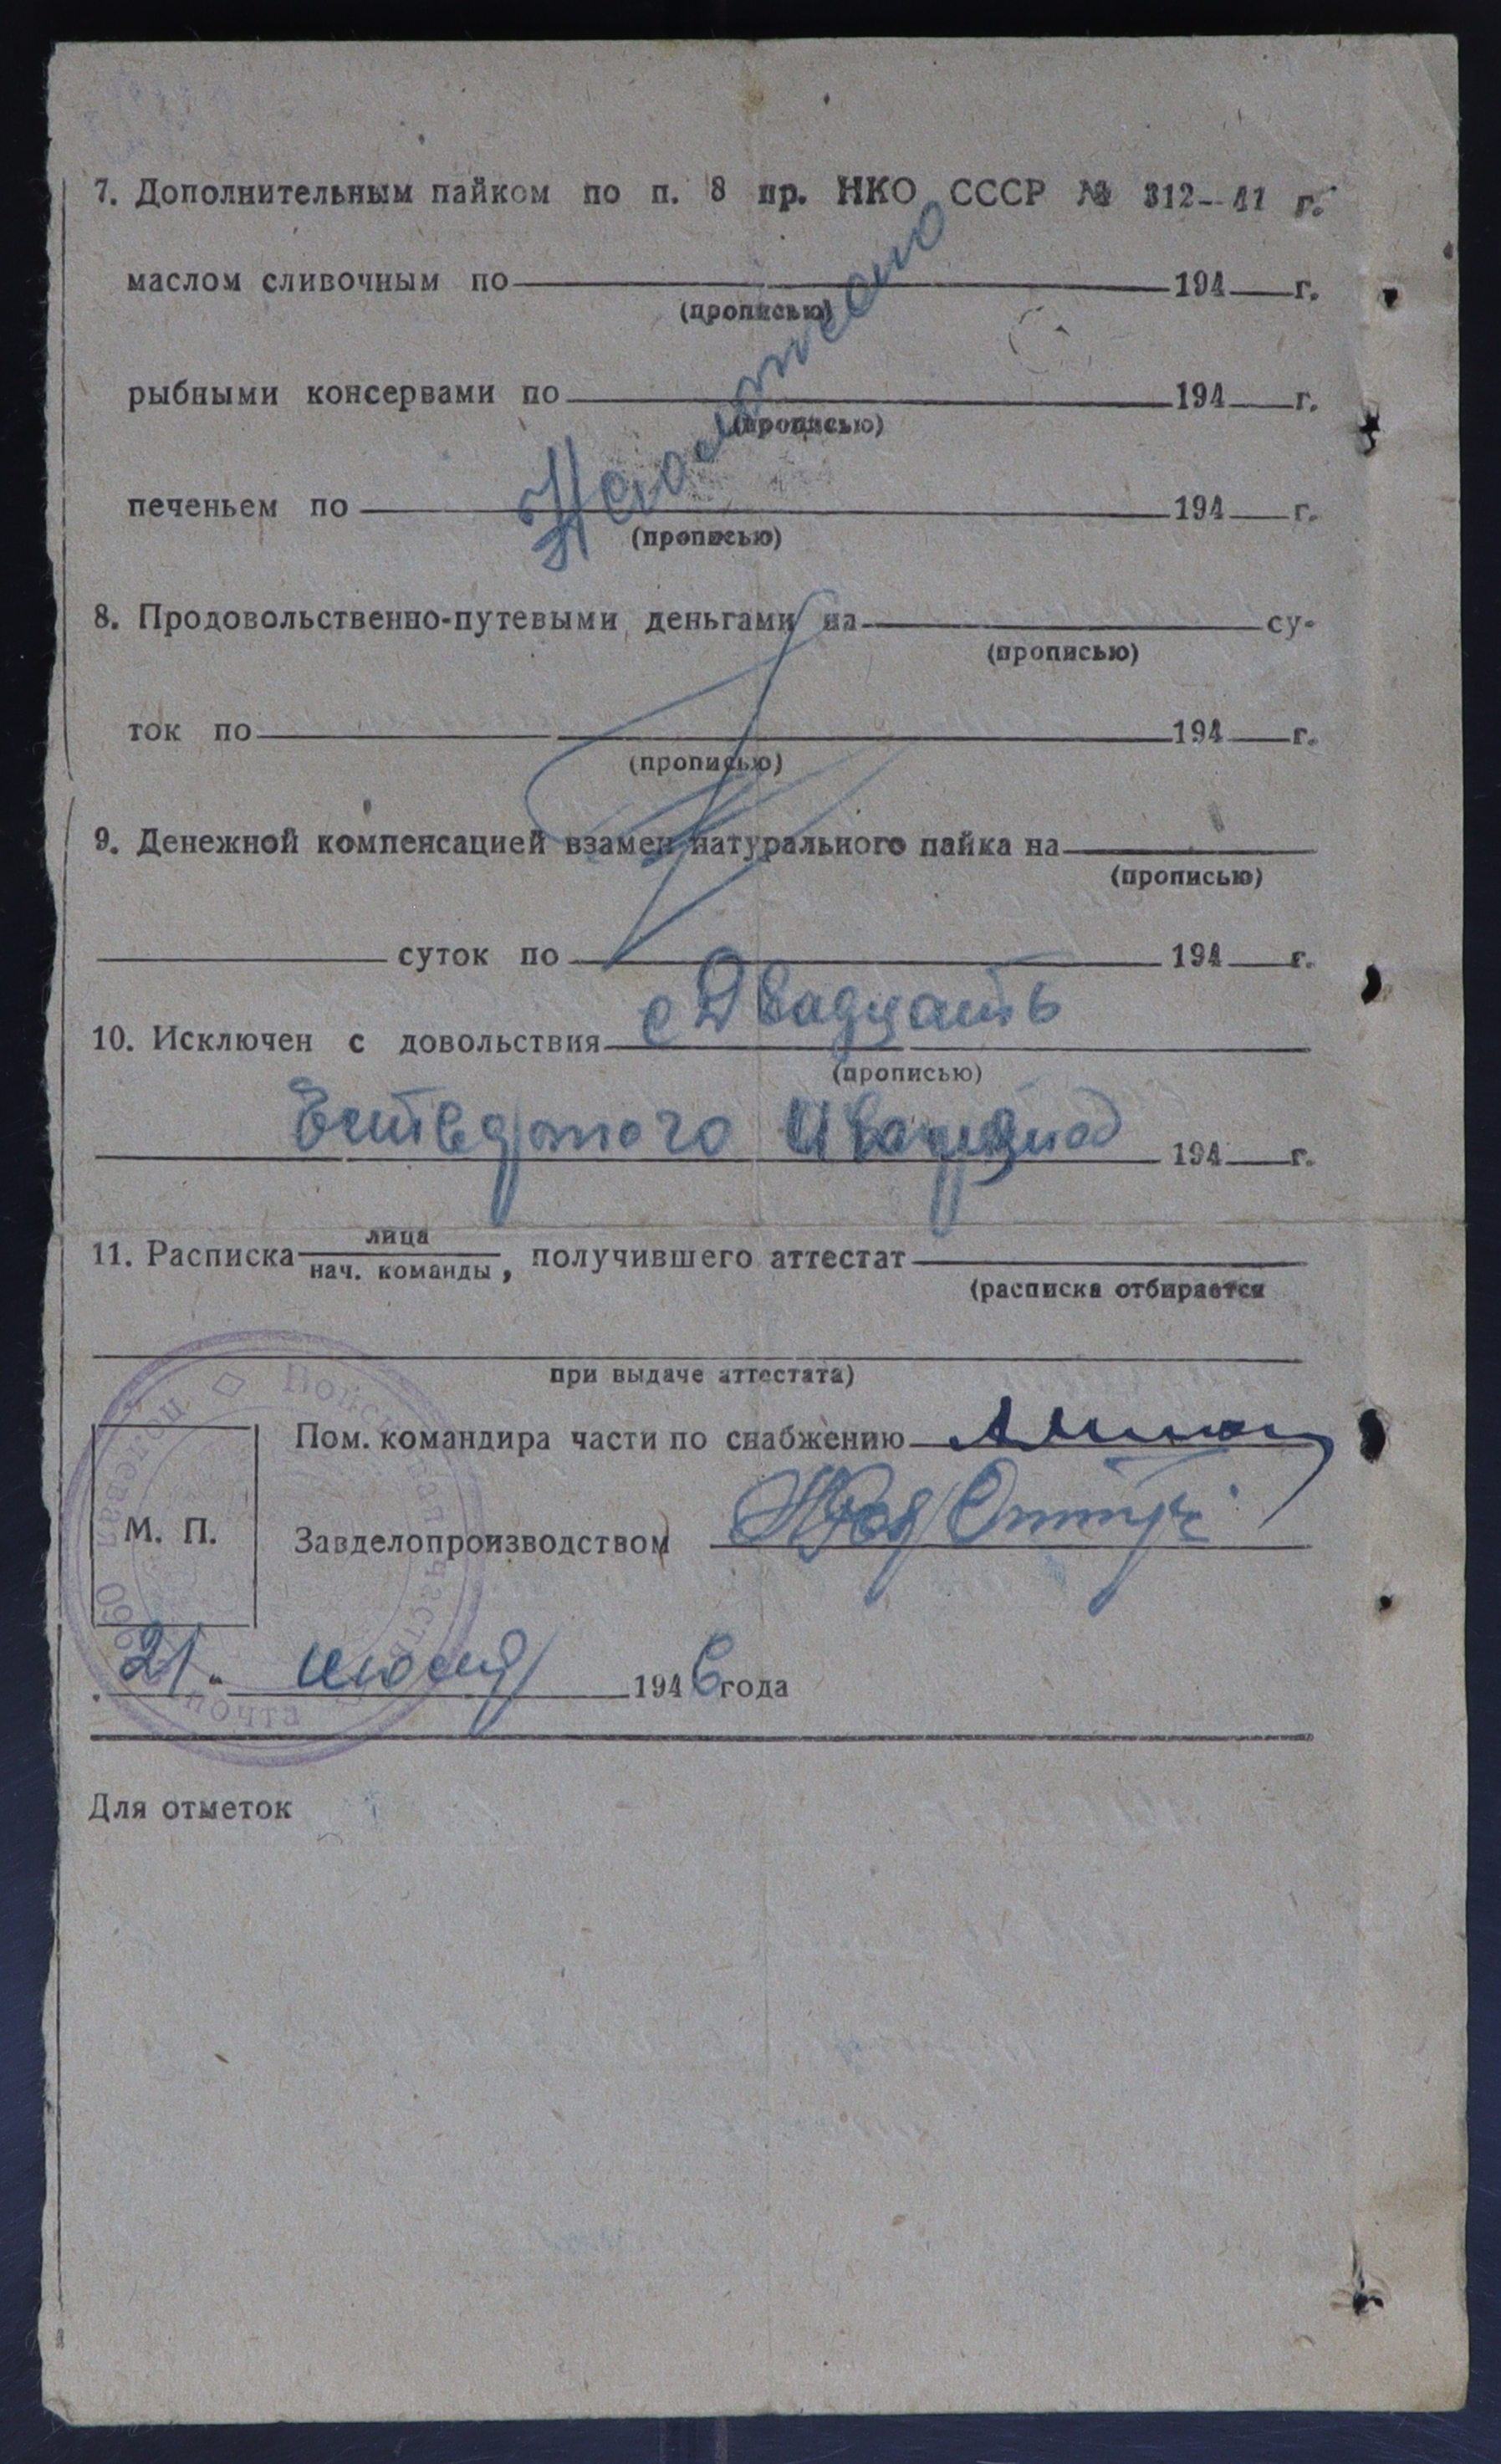 7. Дополнительным пайком по п. 8 пр. НКО СССР № 312—41 г.
маслом сливочным по 194 г.
(прописью)
рыбными консервами по 194 г.
(прописью)
печеньем по 194 г.
(прописью)
8. Продовольственно-путевыми деньгами на су-
(прописью)
ток по 194 г.
(прописью)
9. Денежной компенсацией взамен натурального пайка на
(прописью)
суток по 194 г.
10. Исключен с довольствия с Двадцать
(прописью)
194 г.
11. Расписка лица
нач. команды, получившего аттестат
(расписка отбирается
при выдаче аттестата)
Пом. командира части по снабжению
М. П.
Завделопроизводством
21 июня 1946 года
почта
Для отметок